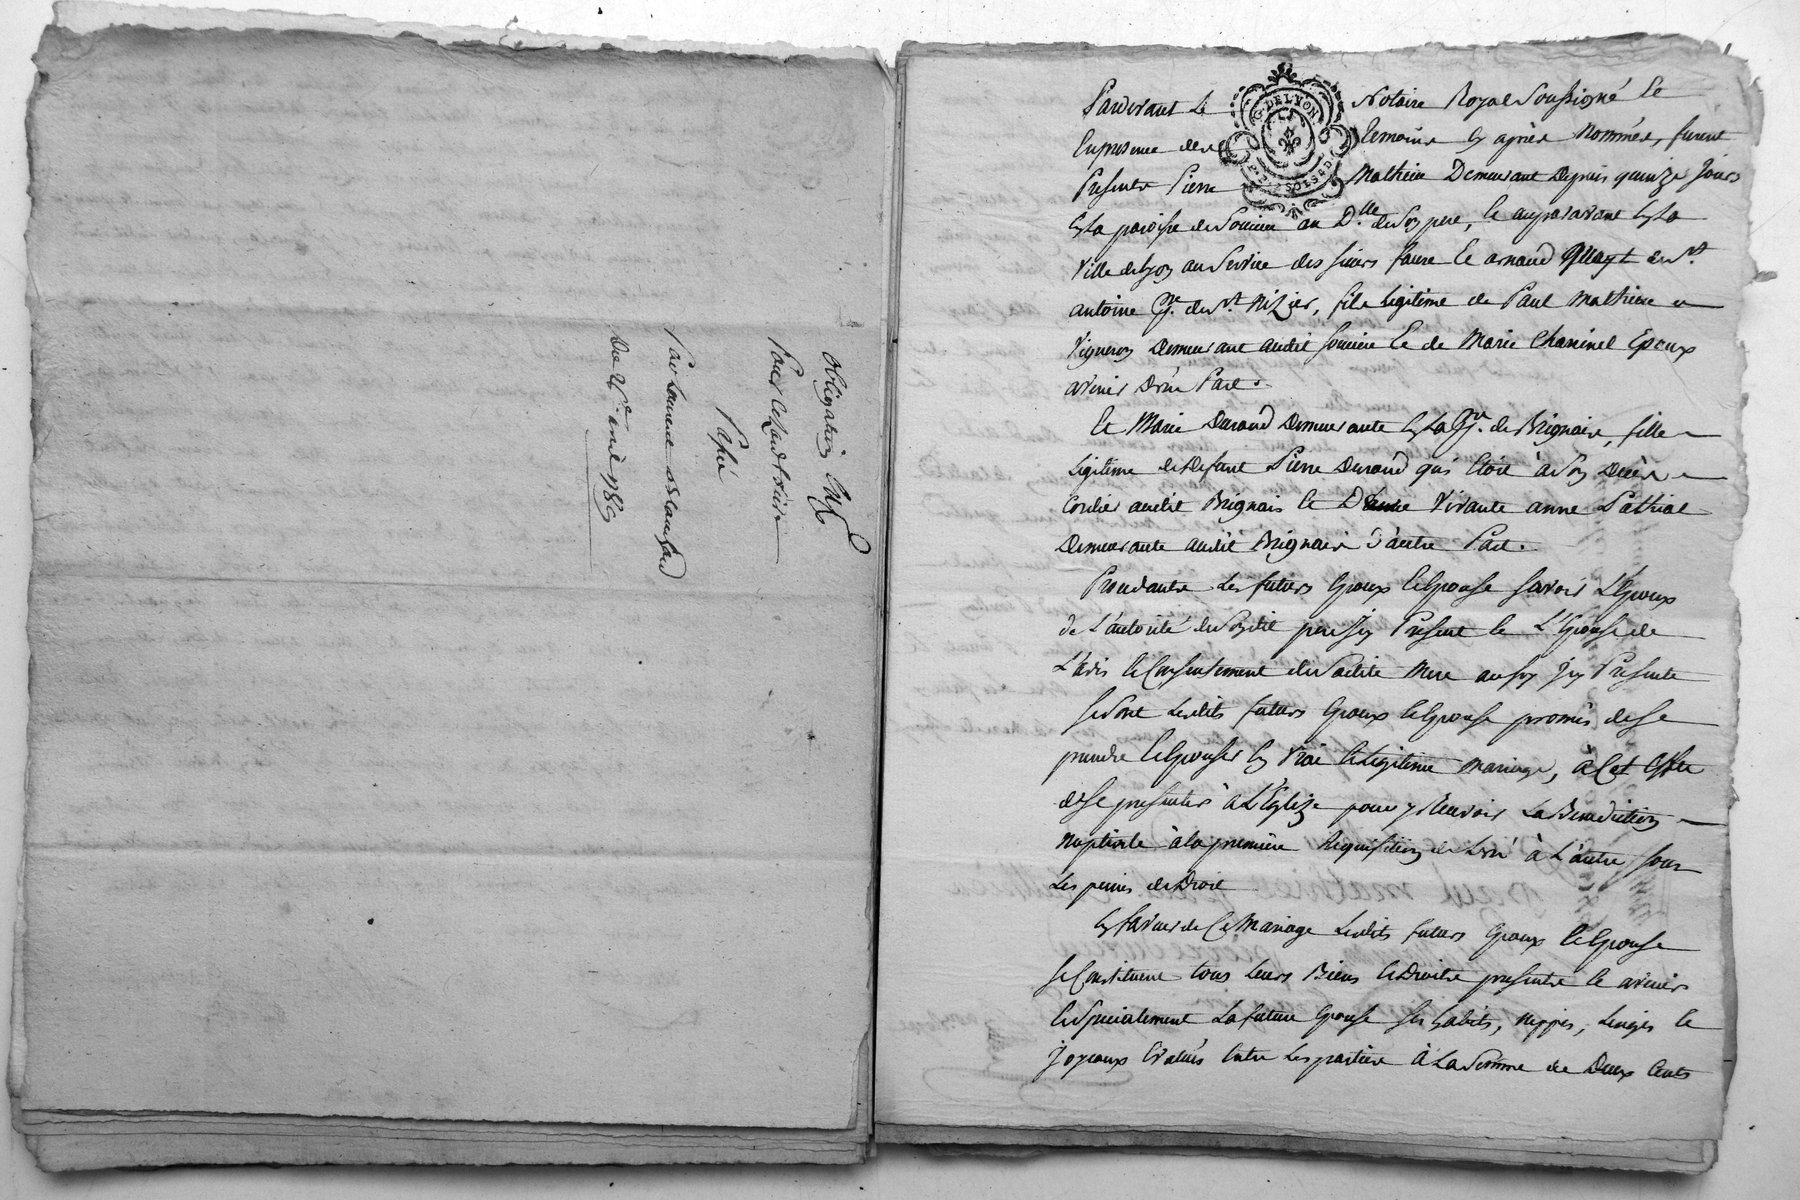 Obligation
Pour
Passé
Par Laurent
Du 21e avril 1789
G. DE LYON
Pardevant Le Notaire Royal Soussigné Et
En presence des temoins cy après Nommés, furent
Presents Pierre Mathieu Demeurant Depuis quinze Jours
En la paroisse de Soucieu au D.lle de Son pere, Et auparavant En la
Ville de Lyon au Service des sieurs faure Et arnaud quay de St
antoine P.sse de St Nizier, fils Legitime de Paul Mathieu
Vigneron Demeurant audit Soucieu Et de Marie Chaninel Epoux
avenir D'une Part.
Et Marie Durand Demeurante En la P.sse de Brignais, fille
Legitime de Defunt Pierre Durand qui Etoit à Son Décès
Cordier audit Brignais Et D'anne Vivante anne Pathiat
Demeurante audit Brignais D'autre Part.
Procedants Les futurs Epoux Et Epouse Savoir L'Epoux
de L'autorité de Son dit pere Icy Present Et L'Epouse de
L'avis Et Consentement de Sadite Mere aussy Icy Presente
Se Sont Lesdits futurs Epoux Et Epouse promis de Se
prendre Et Epouser En Vrai Et Legitime Mariage, à Cet Effet
de Se presenter à L'Eglize pour y Recevoir La Benediction
Nuptiale à la premiere Requisition de L'un à L'autre Sous
Les peines de Droit
En faveur de Ce Mariage Lesdits futurs Epoux Et Epouse
Se Constituent tous Leurs Biens Et Droits presents Et avenirs
Et Specialement La future Epouse Ses habits, nippes, Linges Et
Joyaux Evalués Entre Les parties à La Somme de Deux Cents